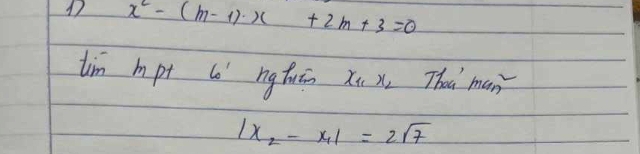 1) x² - (m-1).x + 2m + 3 = 0
tìm m pt có nghiệm x₁, x₂ Thoả mãn
|x₂ - x₁| = 2√7